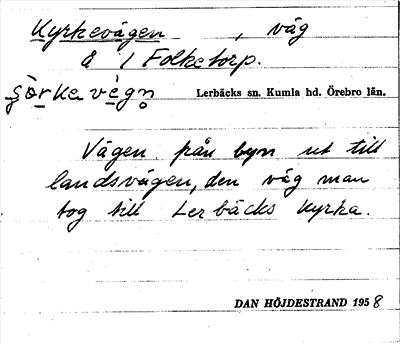 Kyrkevägen, väg
å 1 Folketorp.
şòrke vègn̥ Lerbäcks sn. Kumla hd. Örebro län.
Vägen från byn ut till
landsvägen, den väg man
tog till Lerbäcks kyrka.
DAN HÖJDESTRAND 1958